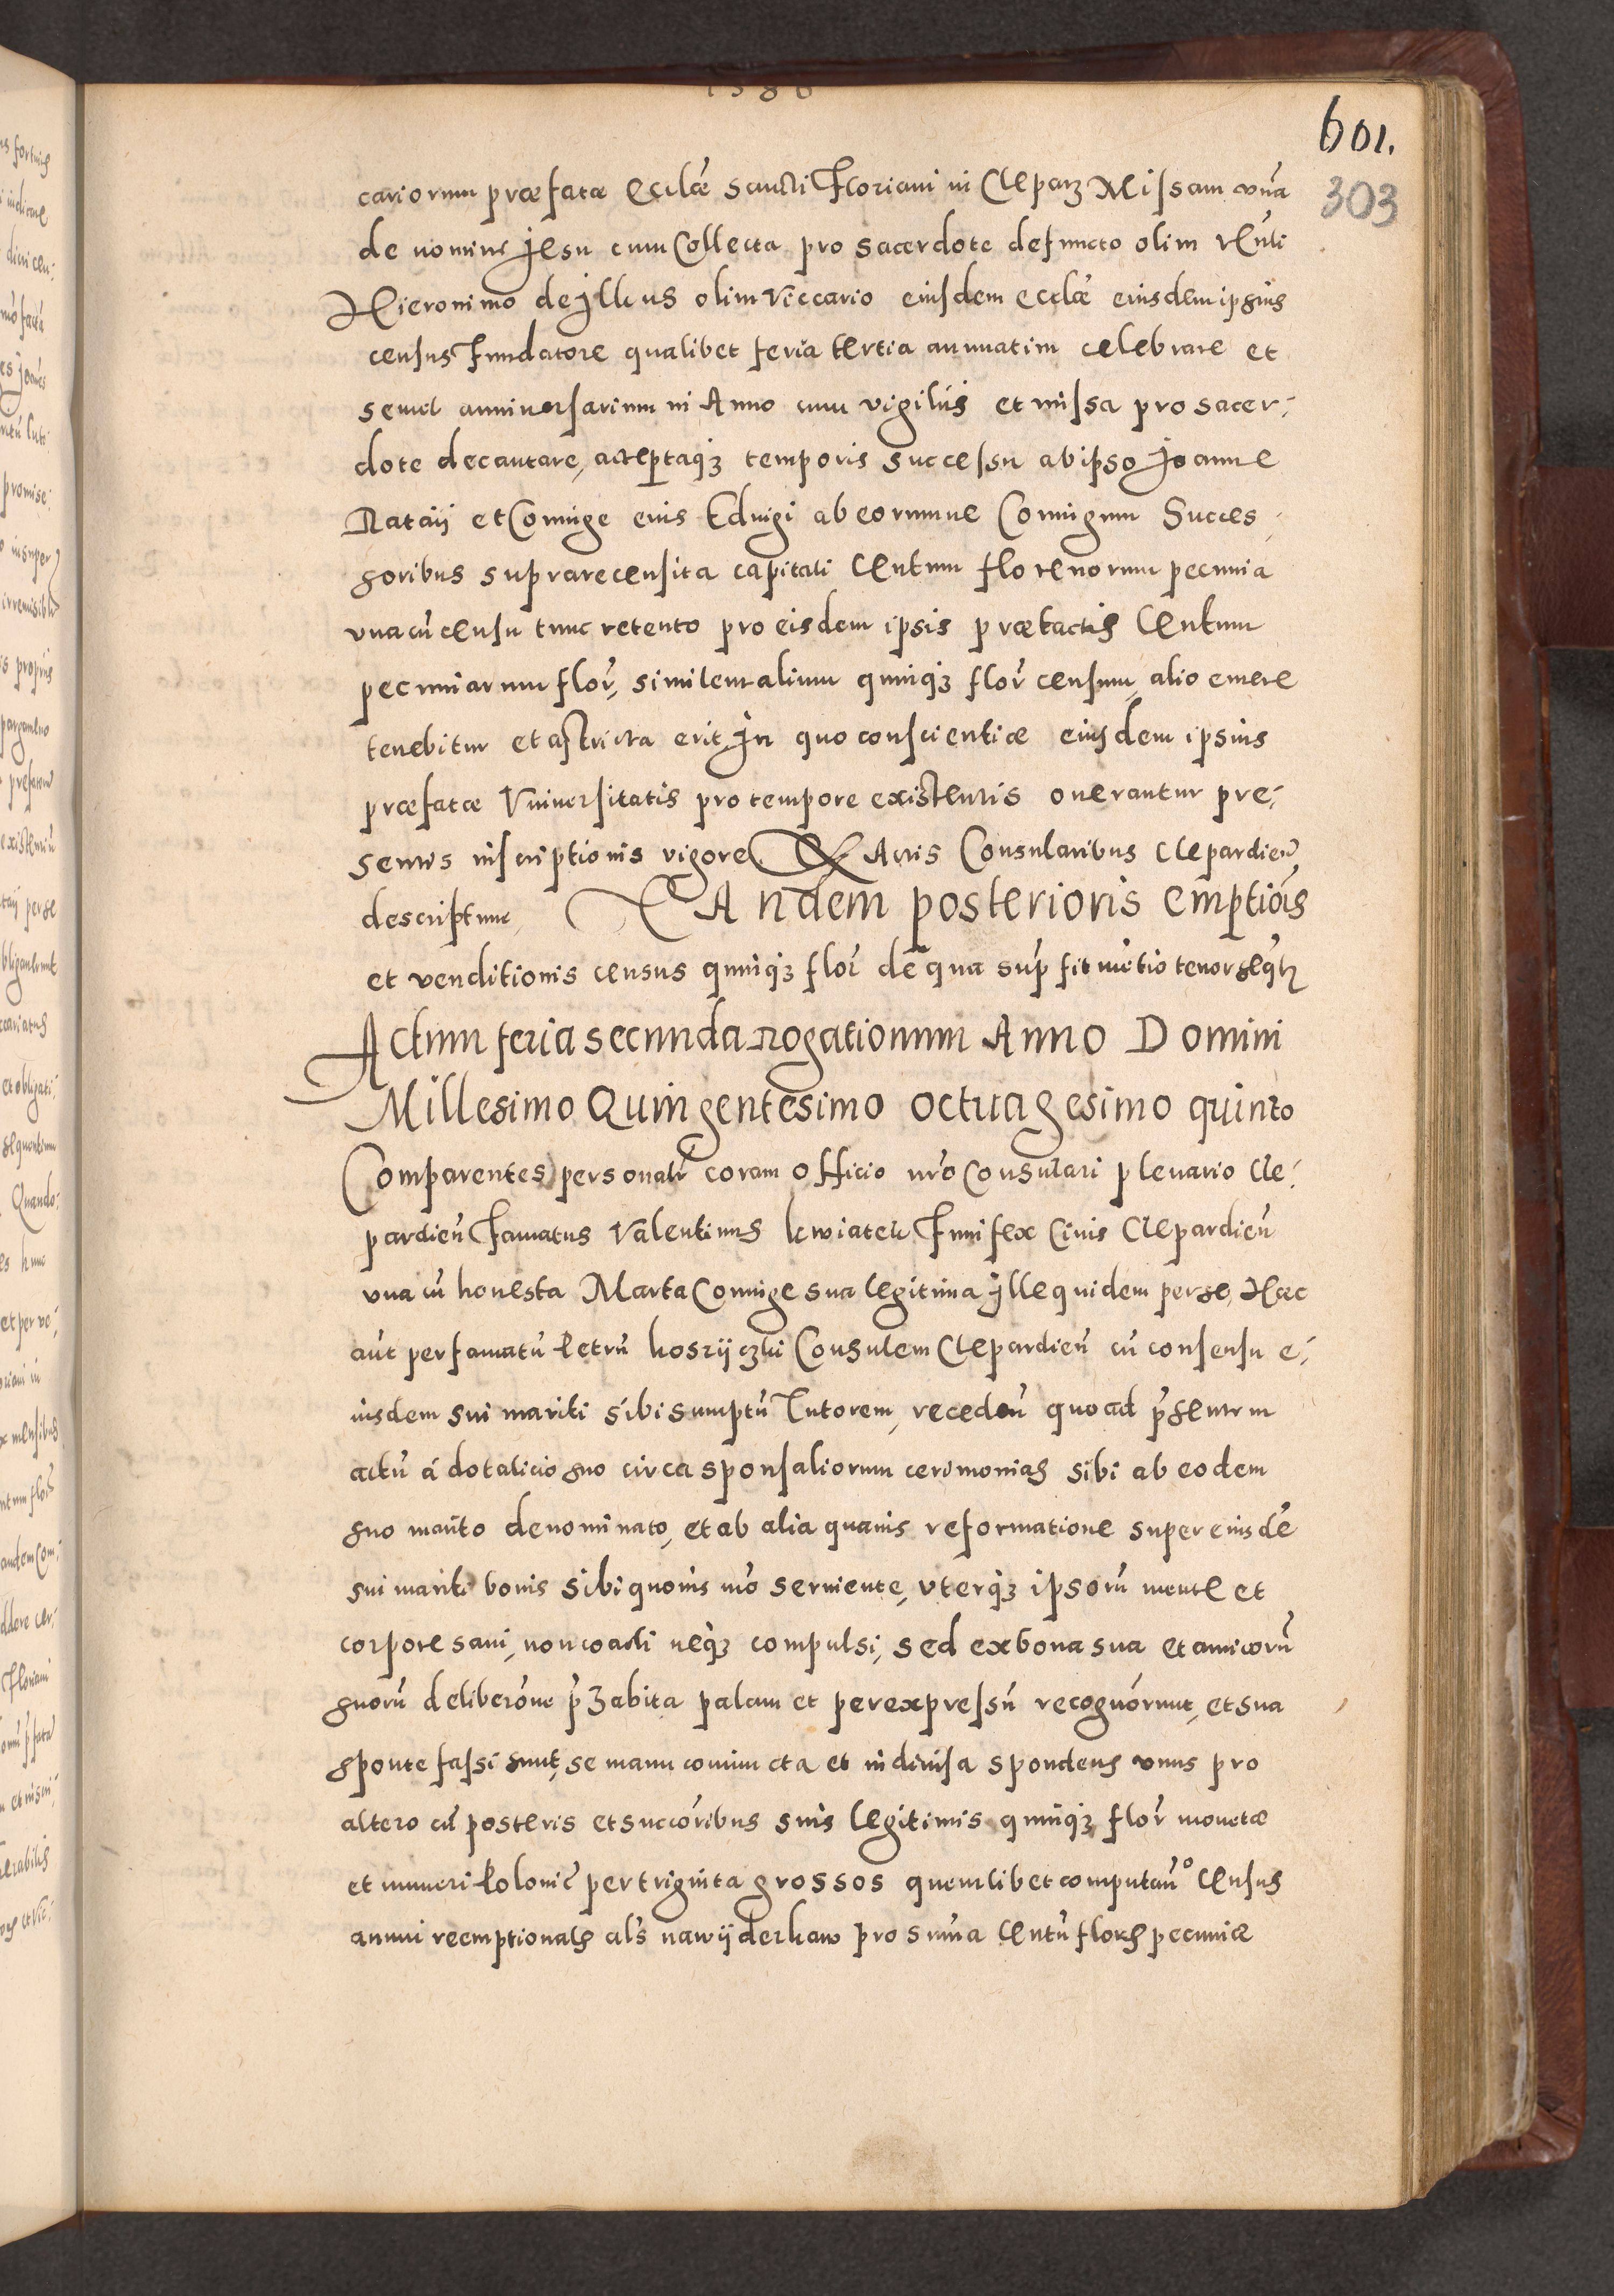 1586
601.
303
cariorum præfatæ Ecclæ̃ Sancti Floriani in Cleparz Missam unã
de nomine Jesu cum Collecta pro sacerdote defuncto olim venli
Hieronimo de Illcus olim Viccario eiusdem ecclæ̃ eiusdem ipsius
census Fundatore qualibet feria tertia annuatim celebrare et
semel anniuersarium in Anno cum vigilijs et missa pro sacer-
dote decantare, acceptaq3 temporis successu ab ipso Joanne
et Coniuge eius Eduigi ab eorumue Coniugum Succes-
soribus suprarecensita capitali Centum florenorum pecunia
vnacũ censu tunc retento pro eisdem ipsis prætactis Centum
pecuniarum flor̃, similem alium quinq3 flor̃ censum, alio emere
tenebitur et astricta erit, In quo conscientiæ eiusdem ipsius
præfatæ Vniuersitatis pro tempore existentis onerantur pre-
sentis inscriptionis vigore. Ex Actis Consularibus Clepardieñ
descriptum. Tandem posterioris emptiõis
et venditionis census quinq3 flor̃ de qua sup̃ fit mẽtio tenor seq̃tr
Actum feria secunda rogationum Anno Domini
Millesimo Quingentesimo octuagesimo quinto
Comparentes personalr̃ coram officio nr̃o Consulari plenario Cle-
pardieñ Famatus Valentinus Funifex Ciuis Clepardieñ
vna cũ honesta Marta Coniuge sua legitima Ille quidem per se, Hæc
aũt per famatũ Petrũ Consulem Clepardieñ cũ consensu e-
iusdem sui mariti sibi sumptũ Tutorem, recedeñ quoad p̃sentem
actũ á dotalicio suo circa sponsaliorum cerimonias sibi ab eodem
suo marito denominato, et ab alia quauis reformatione super eiusdẽ
sui mariti bonis sibi quouis mõ seruiente, vterq3 ipsorũ mente et
corpore sani, non coacti neq3 compulsi, sed ex bona sua et amicorũ
suorũ deliberõne p̃habita palam et per expressũ recognõrunt, et sua
sponte fassi sunt, se manu coniuncta et indiuisa spondens vnus pro
altero cũ posteris et succõribus suis legitimis quinq3 flor̃ monetæ
et numeri Polonic̃ per triginta grossos quemlibet computañº Census
annui reemptionalis als̃ na wijderkaw pro sum̃a Centũ floris pecuniæ